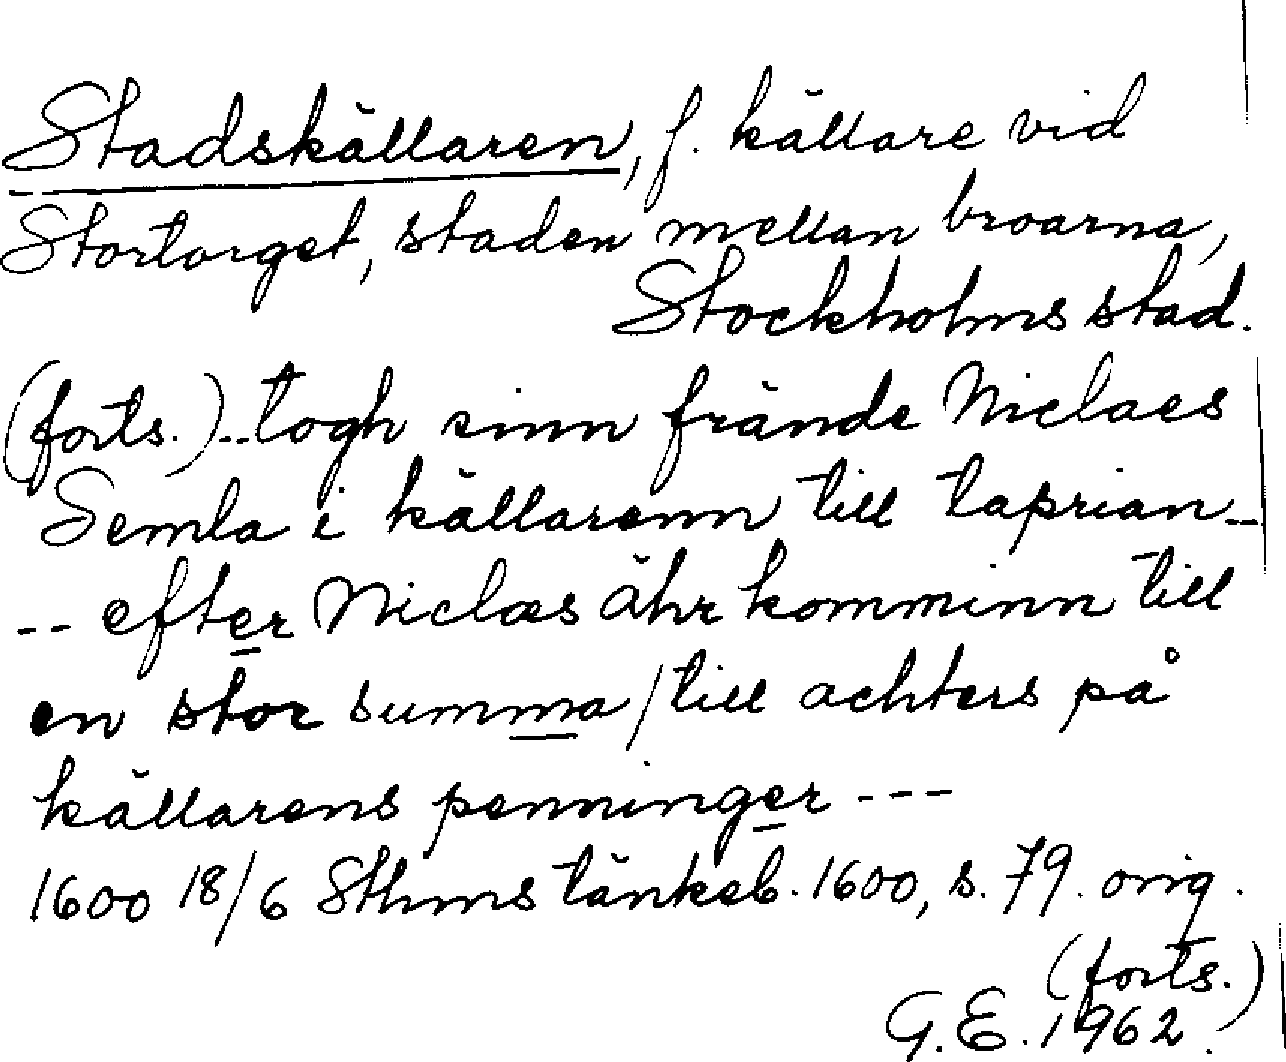 Stadskällaren, f. källare vid
Stortorget, staden mellan broarna,
Stockholms stad.
(forts.)--togh sinn frände Niclaes
Semla i källarenn till taprian--
-- efter Niclaes ähr komminn till
en stor summa/till achters på
källarens penninger ---
1600 18/6 Sthms tänkeb. 1600, s. 79. orig.
(forts.)
G.E. 1962.